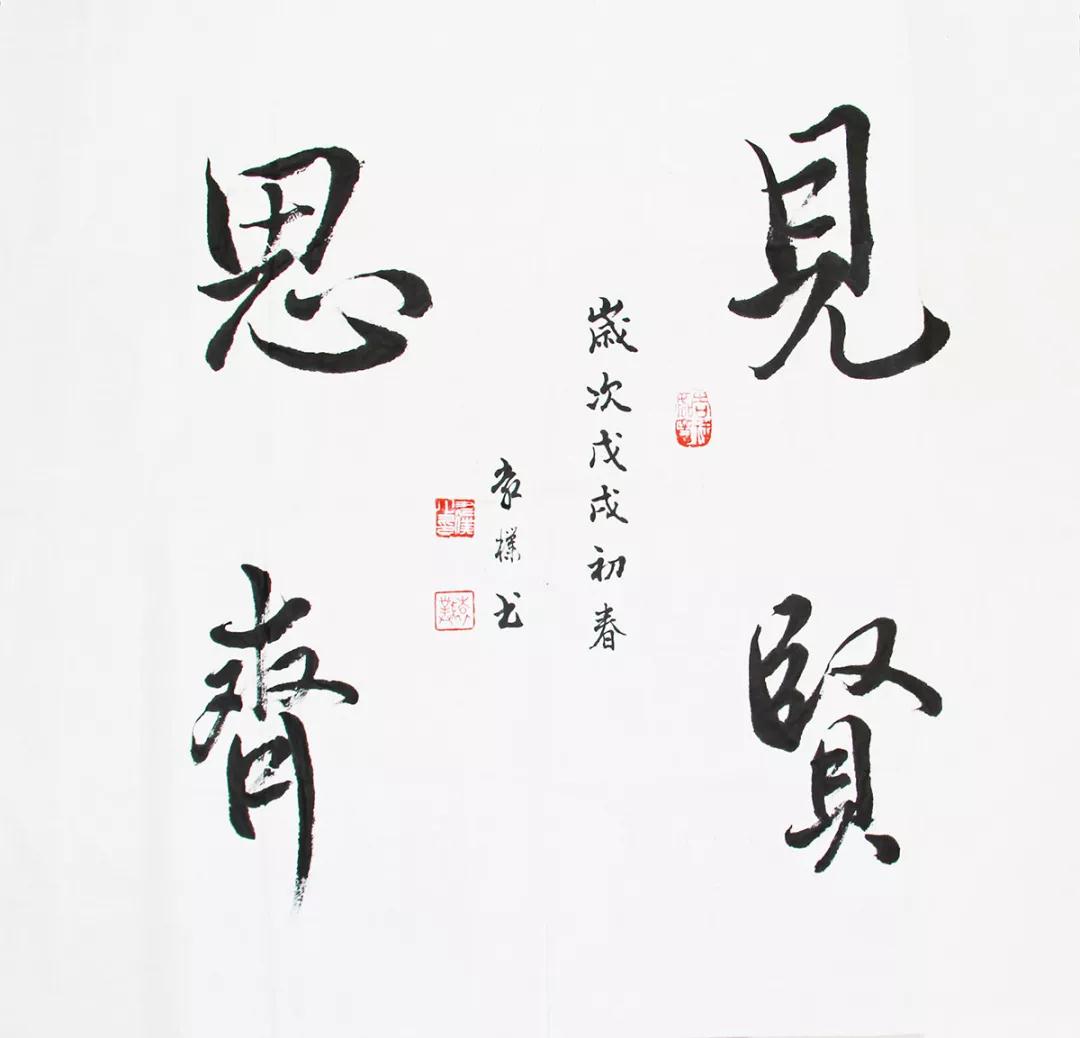 見賢
思齊
歲次戊戌初春
樸书